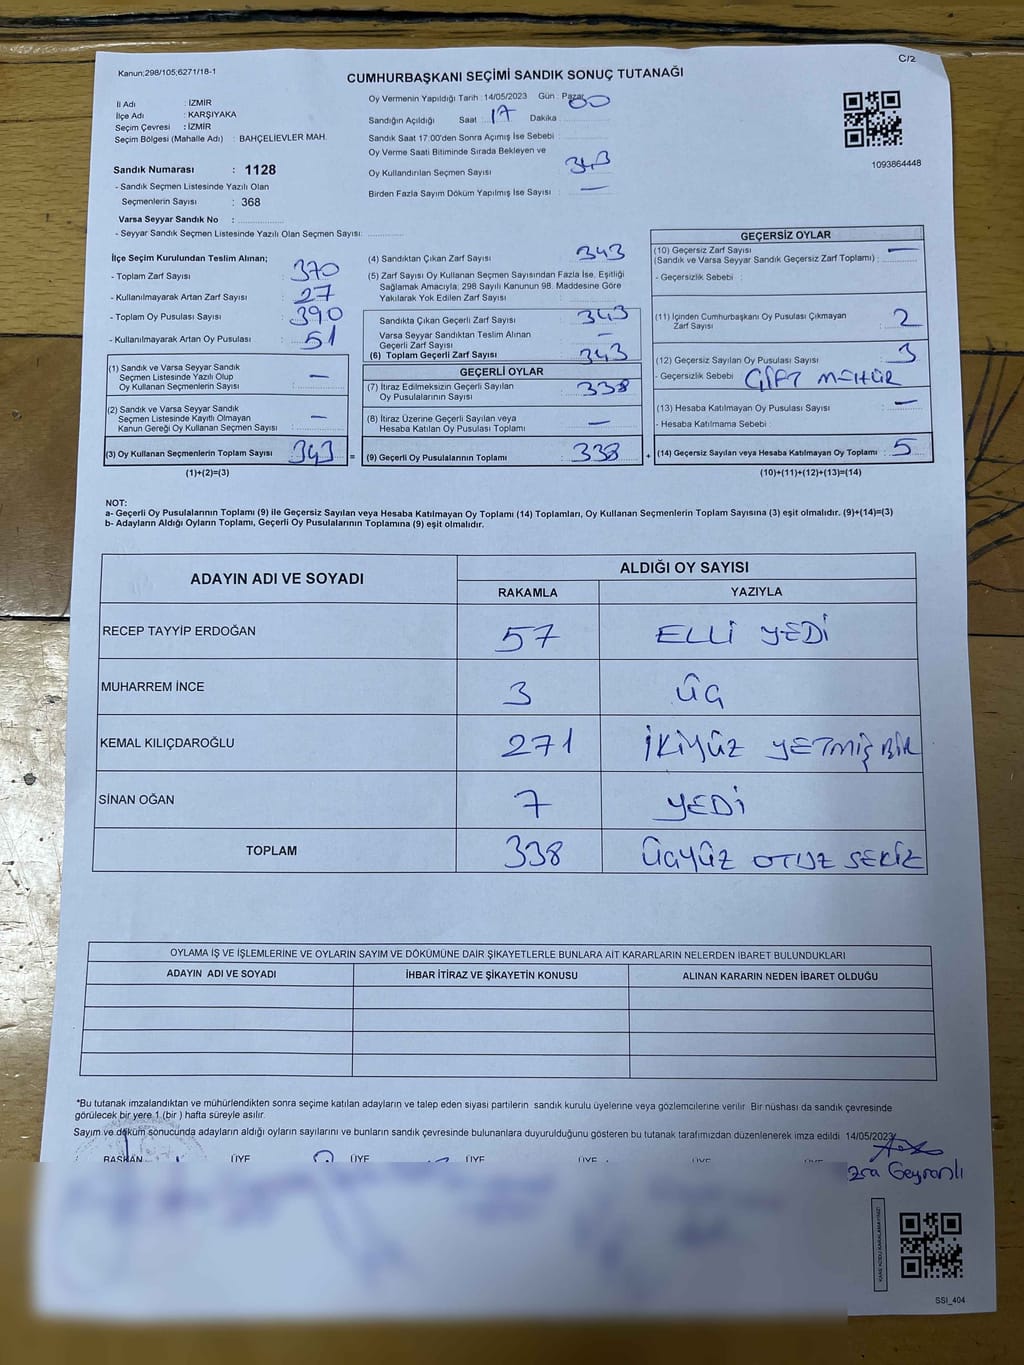 Kanun;298/105;6271/18-1
C/2
CUMHURBAŞKANI SEÇİMİ SANDIK SONUÇ TUTANAĞI
İl Adı : İZMİR
İlçe Adı : KARŞIYAKA
Seçim Çevresi : İZMİR
Seçim Bölgesi (Mahalle Adı) : BAHÇELİEVLER MAH.
Sandık Numarası : 1128
- Sandık Seçmen Listesinde Yazılı Olan
Seçmenlerin Sayısı : 368
Varsa Seyyar Sandık No :
- Seyyar Sandık Seçmen Listesinde Yazılı Olan Seçmen Sayısı:
Oy Vermenin Yapıldığı Tarih : 14/05/2023 Gün : Pazar
Sandığın Açıldığı Saat : 17 Dakika : 00
Sandık Saat 17:00'den Sonra Açımış İse Sebebi :
Oy Verme Saati Bitiminde Sırada Bekleyen ve
Oy Kullandırılan Seçmen Sayısı : 343
Birden Fazla Sayım Döküm Yapılmış İse Sayısı : —
1093864448
İlçe Seçim Kurulundan Teslim Alınan;
- Toplam Zarf Sayısı : 370
- Kullanılmayarak Artan Zarf Sayısı : 27
- Toplam Oy Pusulası Sayısı : 390
- Kullanılmayarak Artan Oy Pusulası : 51
(1) Sandık ve Varsa Seyyar Sandık
Seçmen Listesinde Yazılı Olup
Oy Kullanan Seçmenlerin Sayısı : —
(2) Sandık ve Varsa Seyyar Sandık
Seçmen Listesinde Kayıtlı Olmayan
Kanun Gereği Oy Kullanan Seçmen Sayısı : —
(3) Oy Kullanan Seçmenlerin Toplam Sayısı : 343 =
(1)+(2)=(3)
(4) Sandıktan Çıkan Zarf Sayısı : 343
(5) Zarf Sayısı Oy Kullanan Seçmen Sayısından Fazla İse, Eşitliği
Sağlamak Amacıyla; 298 Sayılı Kanunun 98. Maddesine Göre
Yakılarak Yok Edilen Zarf Sayısı :
Sandıkta Çıkan Geçerli Zarf Sayısı : 343
Varsa Seyyar Sandıktan Teslim Alınan
Geçerli Zarf Sayısı : —
(6) Toplam Geçerli Zarf Sayısı : 343
GEÇERLİ OYLAR
(7) İtiraz Edilmeksizin Geçerli Sayılan
Oy Pusulalarının Sayısı : 338
(8) İtiraz Üzerine Geçerli Sayılan veya
Hesaba Katılan Oy Pusulası Toplamı : —
(9) Geçerli Oy Pusulalarının Toplamı : 338 +
GEÇERSİZ OYLAR
(10) Geçersiz Zarf Sayısı —
(Sandık ve Varsa Seyyar Sandık Geçersiz Zarf Toplamı) :
- Geçersizlik Sebebi :
(11) İçinden Cumhurbaşkanı Oy Pusulası Çıkmayan
Zarf Sayısı : 2
(12) Geçersiz Sayılan Oy Pusulası Sayısı : 3
- Geçersizlik Sebebi ÇİFT MÜHÜR
(13) Hesaba Katılmayan Oy Pusulası Sayısı : —
- Hesaba Katılmama Sebebi
(14) Geçersiz Sayılan veya Hesaba Katılmayan Oy Toplamı : 5
(10)+(11)+(12)+(13)=(14)
NOT:
a- Geçerli Oy Pusulalarının Toplamı (9) ile Geçersiz Sayılan veya Hesaba Katılmayan Oy Toplamı (14) Toplamları, Oy Kullanan Seçmenlerin Toplam Sayısına (3) eşit olmalıdır. (9)+(14)=(3)
b- Adayların Aldığı Oyların Toplamı, Geçerli Oy Pusulalarının Toplamına (9) eşit olmalıdır.
ADAYIN ADI VE SOYADI
ALDIĞI OY SAYISI
RAKAMLA YAZIYLA
RECEP TAYYİP ERDOĞAN 57 ELLİ YEDİ
MUHARREM İNCE 3 ÜÇ
KEMAL KILIÇDAROĞLU 271 İKİYÜZ YETMİŞ BİR
SİNAN OĞAN 7 YEDİ
TOPLAM 338 ÜÇYÜZ OTUZ SEKİZ
OYLAMA İŞ VE İŞLEMLERİNE VE OYLARIN SAYIM VE DÖKÜMÜNE DAİR ŞİKAYETLERLE BUNLARA AİT KARARLARIN NELERDEN İBARET BULUNDUKLARI
ADAYIN ADI VE SOYADI İHBAR İTİRAZ VE ŞİKAYETİN KONUSU ALINAN KARARIN NEDEN İBARET OLDUĞU
*Bu tutanak imzalandıktan ve mühürlendikten sonra seçime katılan adayların ve talep eden siyasi partilerin sandık kurulu üyelerine veya gözlemcilerine verilir Bir nüshası da sandık çevresinde
görülecek bir yere 1 (bir ) hafta süreyle asılır.
Sayım ve döküm sonucunda adayların aldığı oyların sayılarını ve bunların sandık çevresinde bulunanlara duyurulduğunu gösteren bu tutanak tarafımızdan düzenlenerek imza edildi 14/05/2023
BAŞKAN ÜYE ÜYE ÜYE ÜYE ÜYE ÜYE
KARE KODU KARALAMAYINIZ!
SSI_404